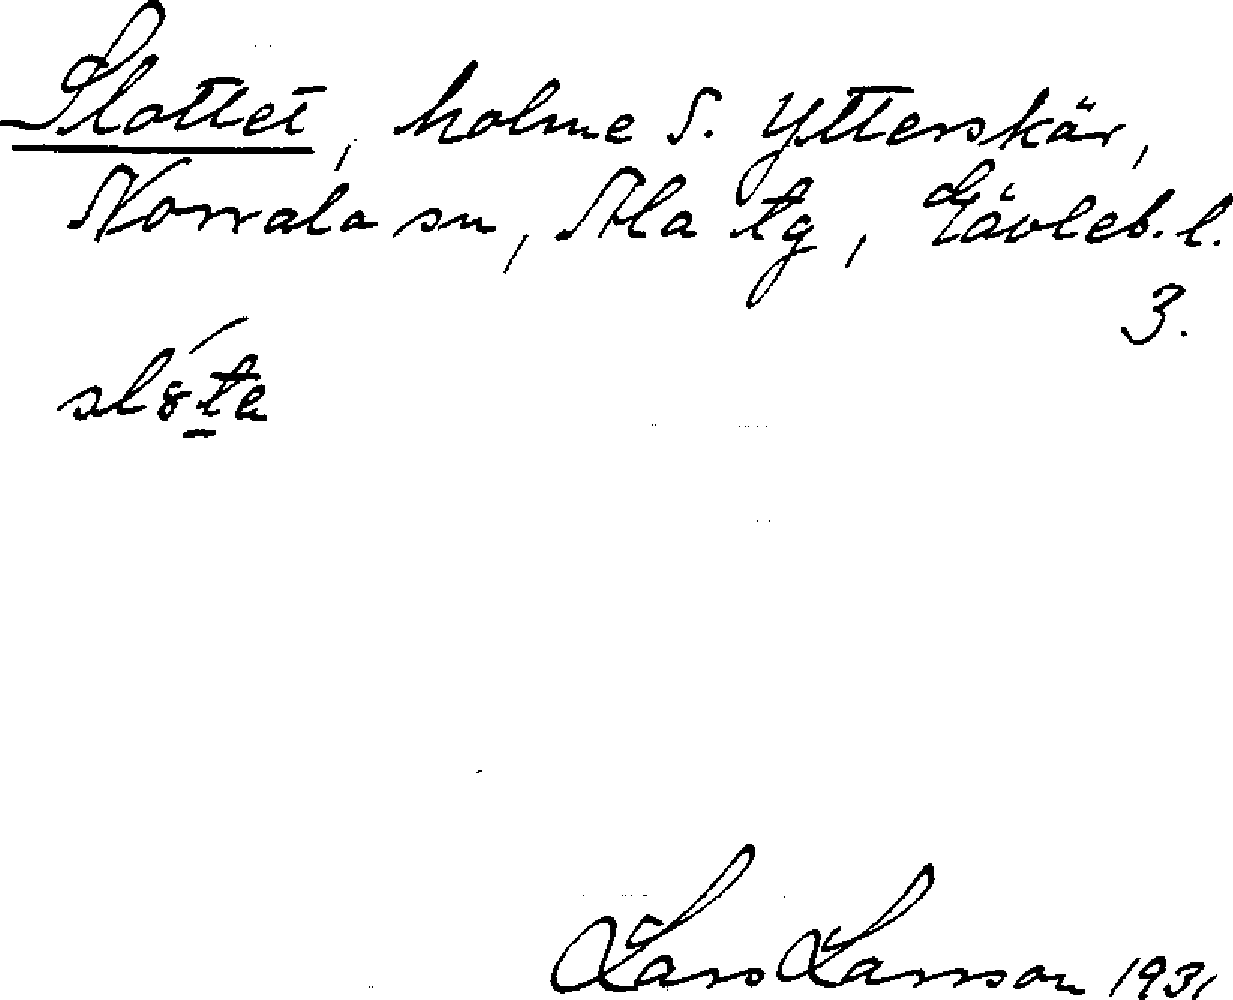 Slottet, holme S. Ytterskär,
Norrala sn, Ala tg, Gävleb. l.
3.
sló̱ta
Lars Larsson 1931